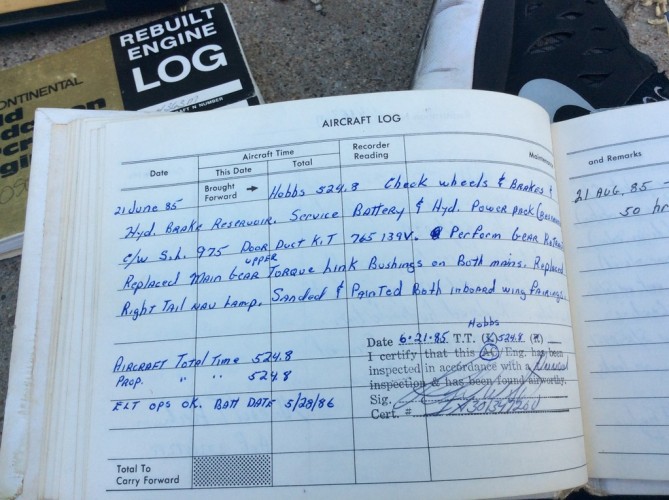 REBUILT
ENGINE
LOG
CONTINENTAL
AIRCRAFT LOG
Date
Aircraft Time
This Date
Total
Recorder
Reading
and Remarks
Brought
Forward
21 June 85 Hobbs 524.8 Check wheels & BRAKES &
Hyd. BRAKE Reservoir. Service BATTERY & Hyd. Power pack
c/w S.L. 975 DOOR DUCT KIT 765 139V. Perform GEAR
UPPER
Replaced MAIN GEAR TORQUE Link Bushings on BOTH mains. Replaced
Right Tail NAV LAMP. Sanded & PAINTED BOTH inboard wing FAIRINGS.
21 AUG. 85 -
50 hr
AIRCRAFT TOTAL Time 524.8
PROP. " " 524.8
ELT OPS OK. BATT DATE 5/28/86
Hobbs
Date 6-21-85 T.T. 524.8
I certify that this AC/Eng. has been
inspected in accordance with a
inspection & has been found airworthy.
Sig.
Cert. #
Total To
Carry Forward